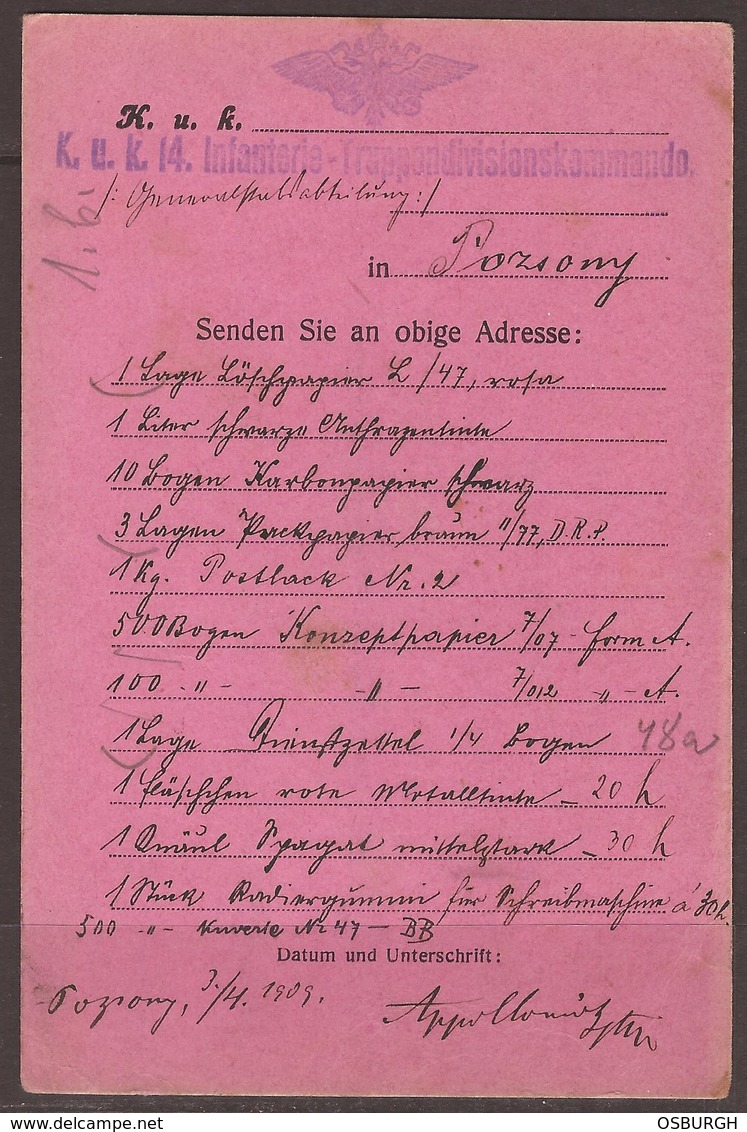 K. u. k.
K. u. k. 14. Infanterie-Truppendivisionskommando.
/: Generalstabsabteilung :/
1. b
in Pozsony
Senden Sie an obige Adresse:
1 Lage Löschpapier L/47, rosa
1 Liter schwarze Anthrazentinte
10 Bogen Karbonpapier schwarz
3 Lagen Packpapier braun II/77, D.R.P.
1 Kg. Postlack Nr. 2
500 Bogen Konzeptpapier 7/07 - Form A.
100 -"- -"- 7/012 -"- A.
1 Lage Dienstzettel 1/4 Bogen 48a
1 Fläschchen rote Metalltinte - 20 h
1 Knäul Spagat mittelstark - 30 h
1 Stück Radiergummi für Schreibmaschine á 30 h.
500 -"- Kuverte Nr 47 - BB
Datum und Unterschrift:
Pozsony, 3./4. 1909.
OSBURGH
www.delcampe.net